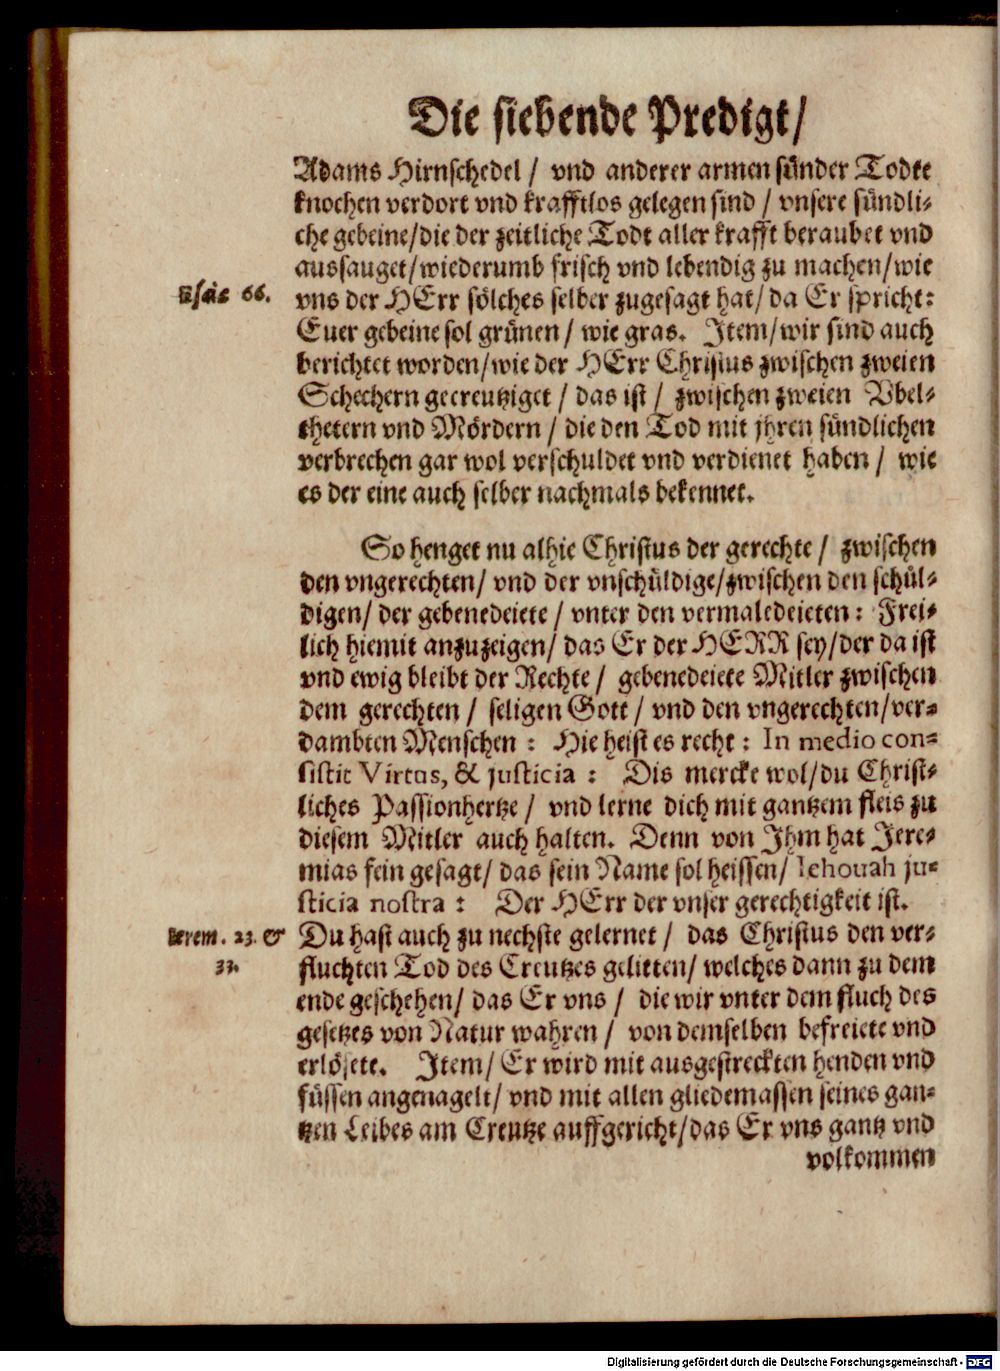 Die siebende Predigt/
Adams Hirnschedel / vnd anderer armen sünder Todte
knochen verdort vnd krafftlos gelegen sind / vnsere sündli-
che gebeine/die der zeitliche Todt aller krafft beraubet vnd
aussauget/wiederumb frisch vnd lebendig zu machen/wie
Esaie 66.
vns der HErr sölches selber zugesagt hat/ da Er spricht:
Euer gebeine sol grünen / wie gras. Item/wir sind auch
berichtet worden/wie der HErr Christus zwischen zweien
Schechern gecreutziget / das ist / zwischen zweien Vbel-
thetern vnd Mördern / die den Tod mit jhren sündlichen
verbrechen gar wol verschuldet vnd verdienet haben / wie
es der eine auch selber nachmals bekennet.
So henget nu alhie Christus der gerechte / zwischen
den vngerechten/ vnd der vnschüldige/zwischen den schül-
digen/ der gebenedeiete / vnter den vermaledeieten: Frei-
lich hiemit anzuzeigen/ das Er der HERR sey/der da ist
vnd ewig bleibt der Rechte / gebenedeiete Mitler zwischen
dem gerechten / seligen Gott / vnd den vngerechten/ver-
dambten Menschen : Hie heist es recht : In medio con-
sistit Virtus, & justicia : Dis mercke wol/du Christ-
liches Passionhertze / vnd lerne dich mit gantzem fleis zu
diesem Mitler auch halten. Denn von Jhm hat Jere-
mias fein gesagt/ das sein Name sol heissen/ Iehouah ju-
sticia nostra : Der HErr der vnser gerechtigkeit ist.
Ierem. 23. &
33.
Du hast auch zu nechste gelernet / das Christus den ver-
fluchten Tod des Creutzes gelitten/ welches dann zu dem
ende geschehen/ das Er vns / die wir vnter dem fluch des
gesetzes von Natur wahren / von demselben befreiete vnd
erlösete. Item/ Er wird mit ausgestreckten henden vnd
füssen angenagelt/ vnd mit allen gliedemassen seines gan-
tzen Leibes am Creutze auffgericht/das Er vns gantz vnd
volkommen
Digitalisierung gefördert durch die Deutsche Forschungsgemeinschaft - DFG